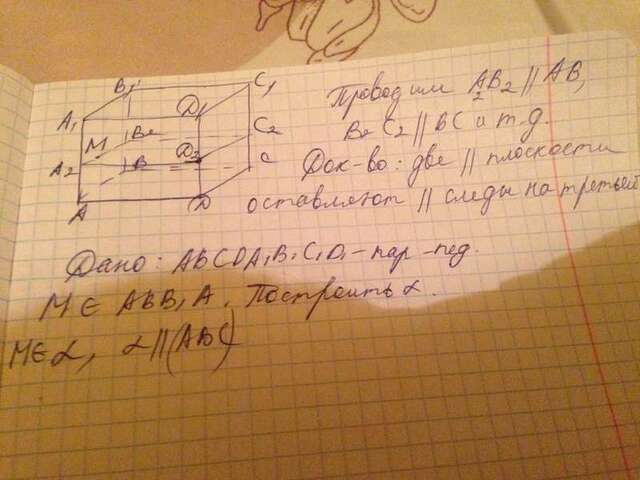 B₁
C₁
A₁
D₁
M
B₂
C₂
A₂
B
D₂
C
A
D
Проводим A₂B₂ || AB,
B₂C₂ || BC и т.д.
Док-во: две || плоскости
оставляют || следы на третьей
Дано: ABCDA₁B₁C₁D₁ - пар-пед.
M ∈ ABB₁A₁. Построить α.
M ∈ α, α || (ABC)